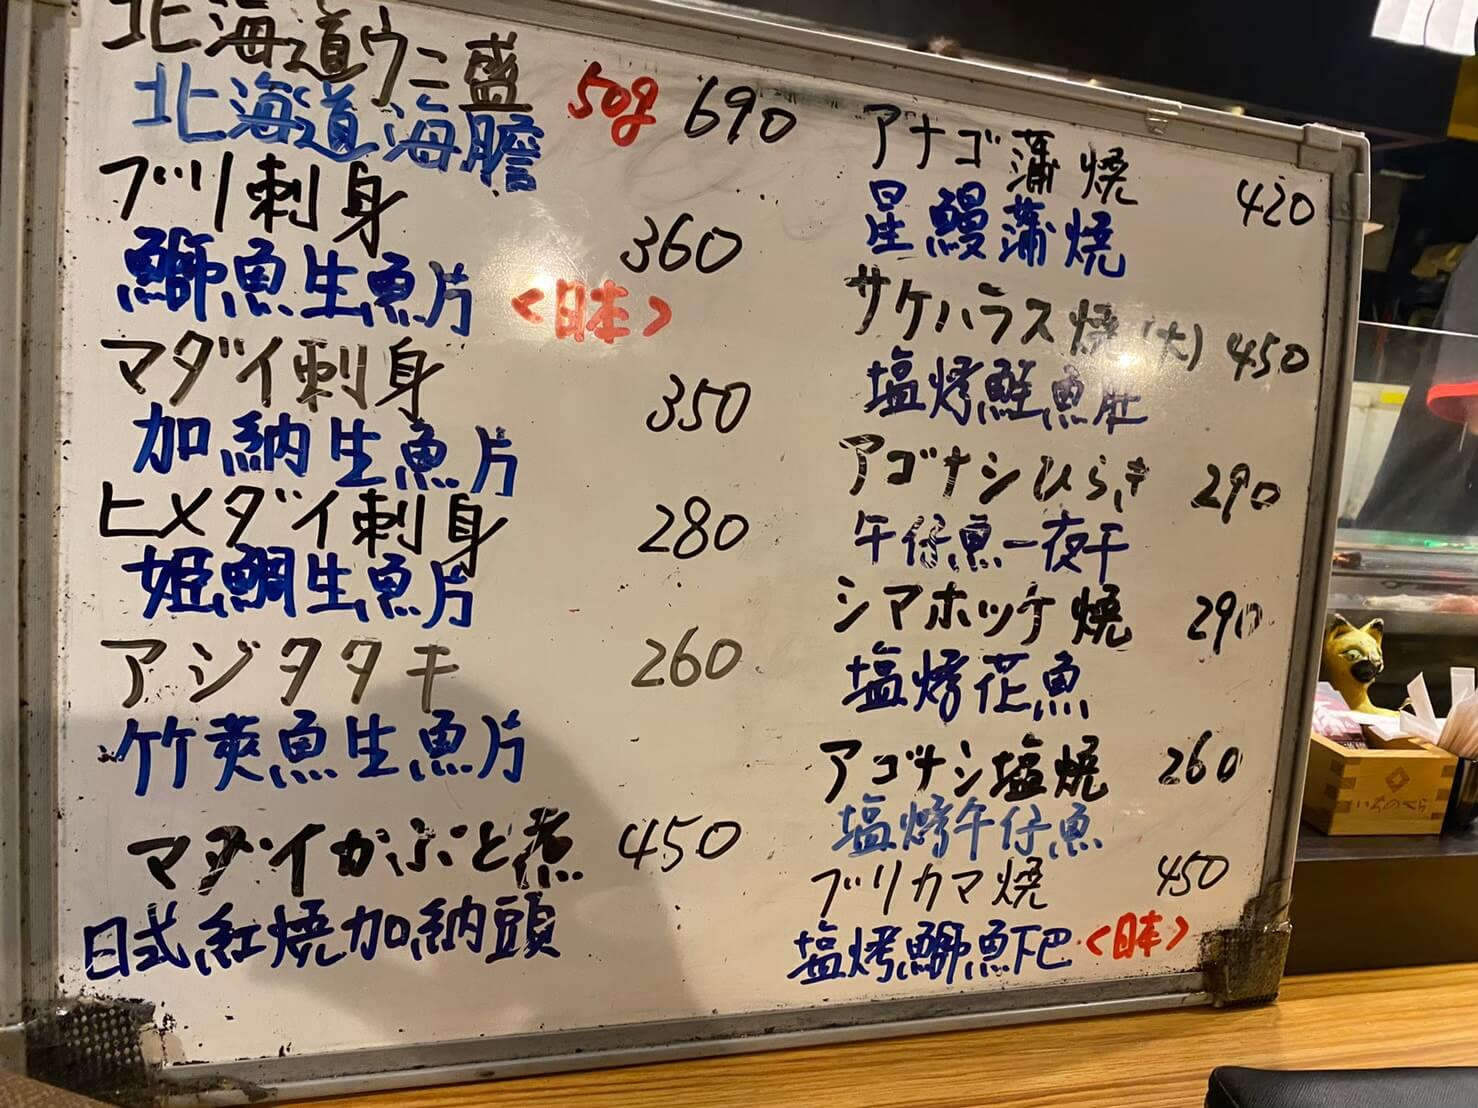 北海道ウニ盛
北海道海膽 50g 690
ブリ刺身
鰤魚生魚片 <日本> 360
マダイ刺身
加納生魚片 350
ヒメダイ刺身
姫鯛生魚片 280
アジタタキ 260
竹莢魚生魚片
マダイかぶと煮 450
日式紅燒加納頭
アナゴ蒲焼 420
星鰻蒲燒
サケハラス焼(大) 450
塩烤鮭魚肚
アゴナシひらき 290
午仔魚一夜干
シマホッケ焼 290
塩烤花魚
アゴナシ塩焼 260
塩烤午仔魚
ブリカマ焼 450
塩烤鰤魚下巴 <日本>
いちのくら